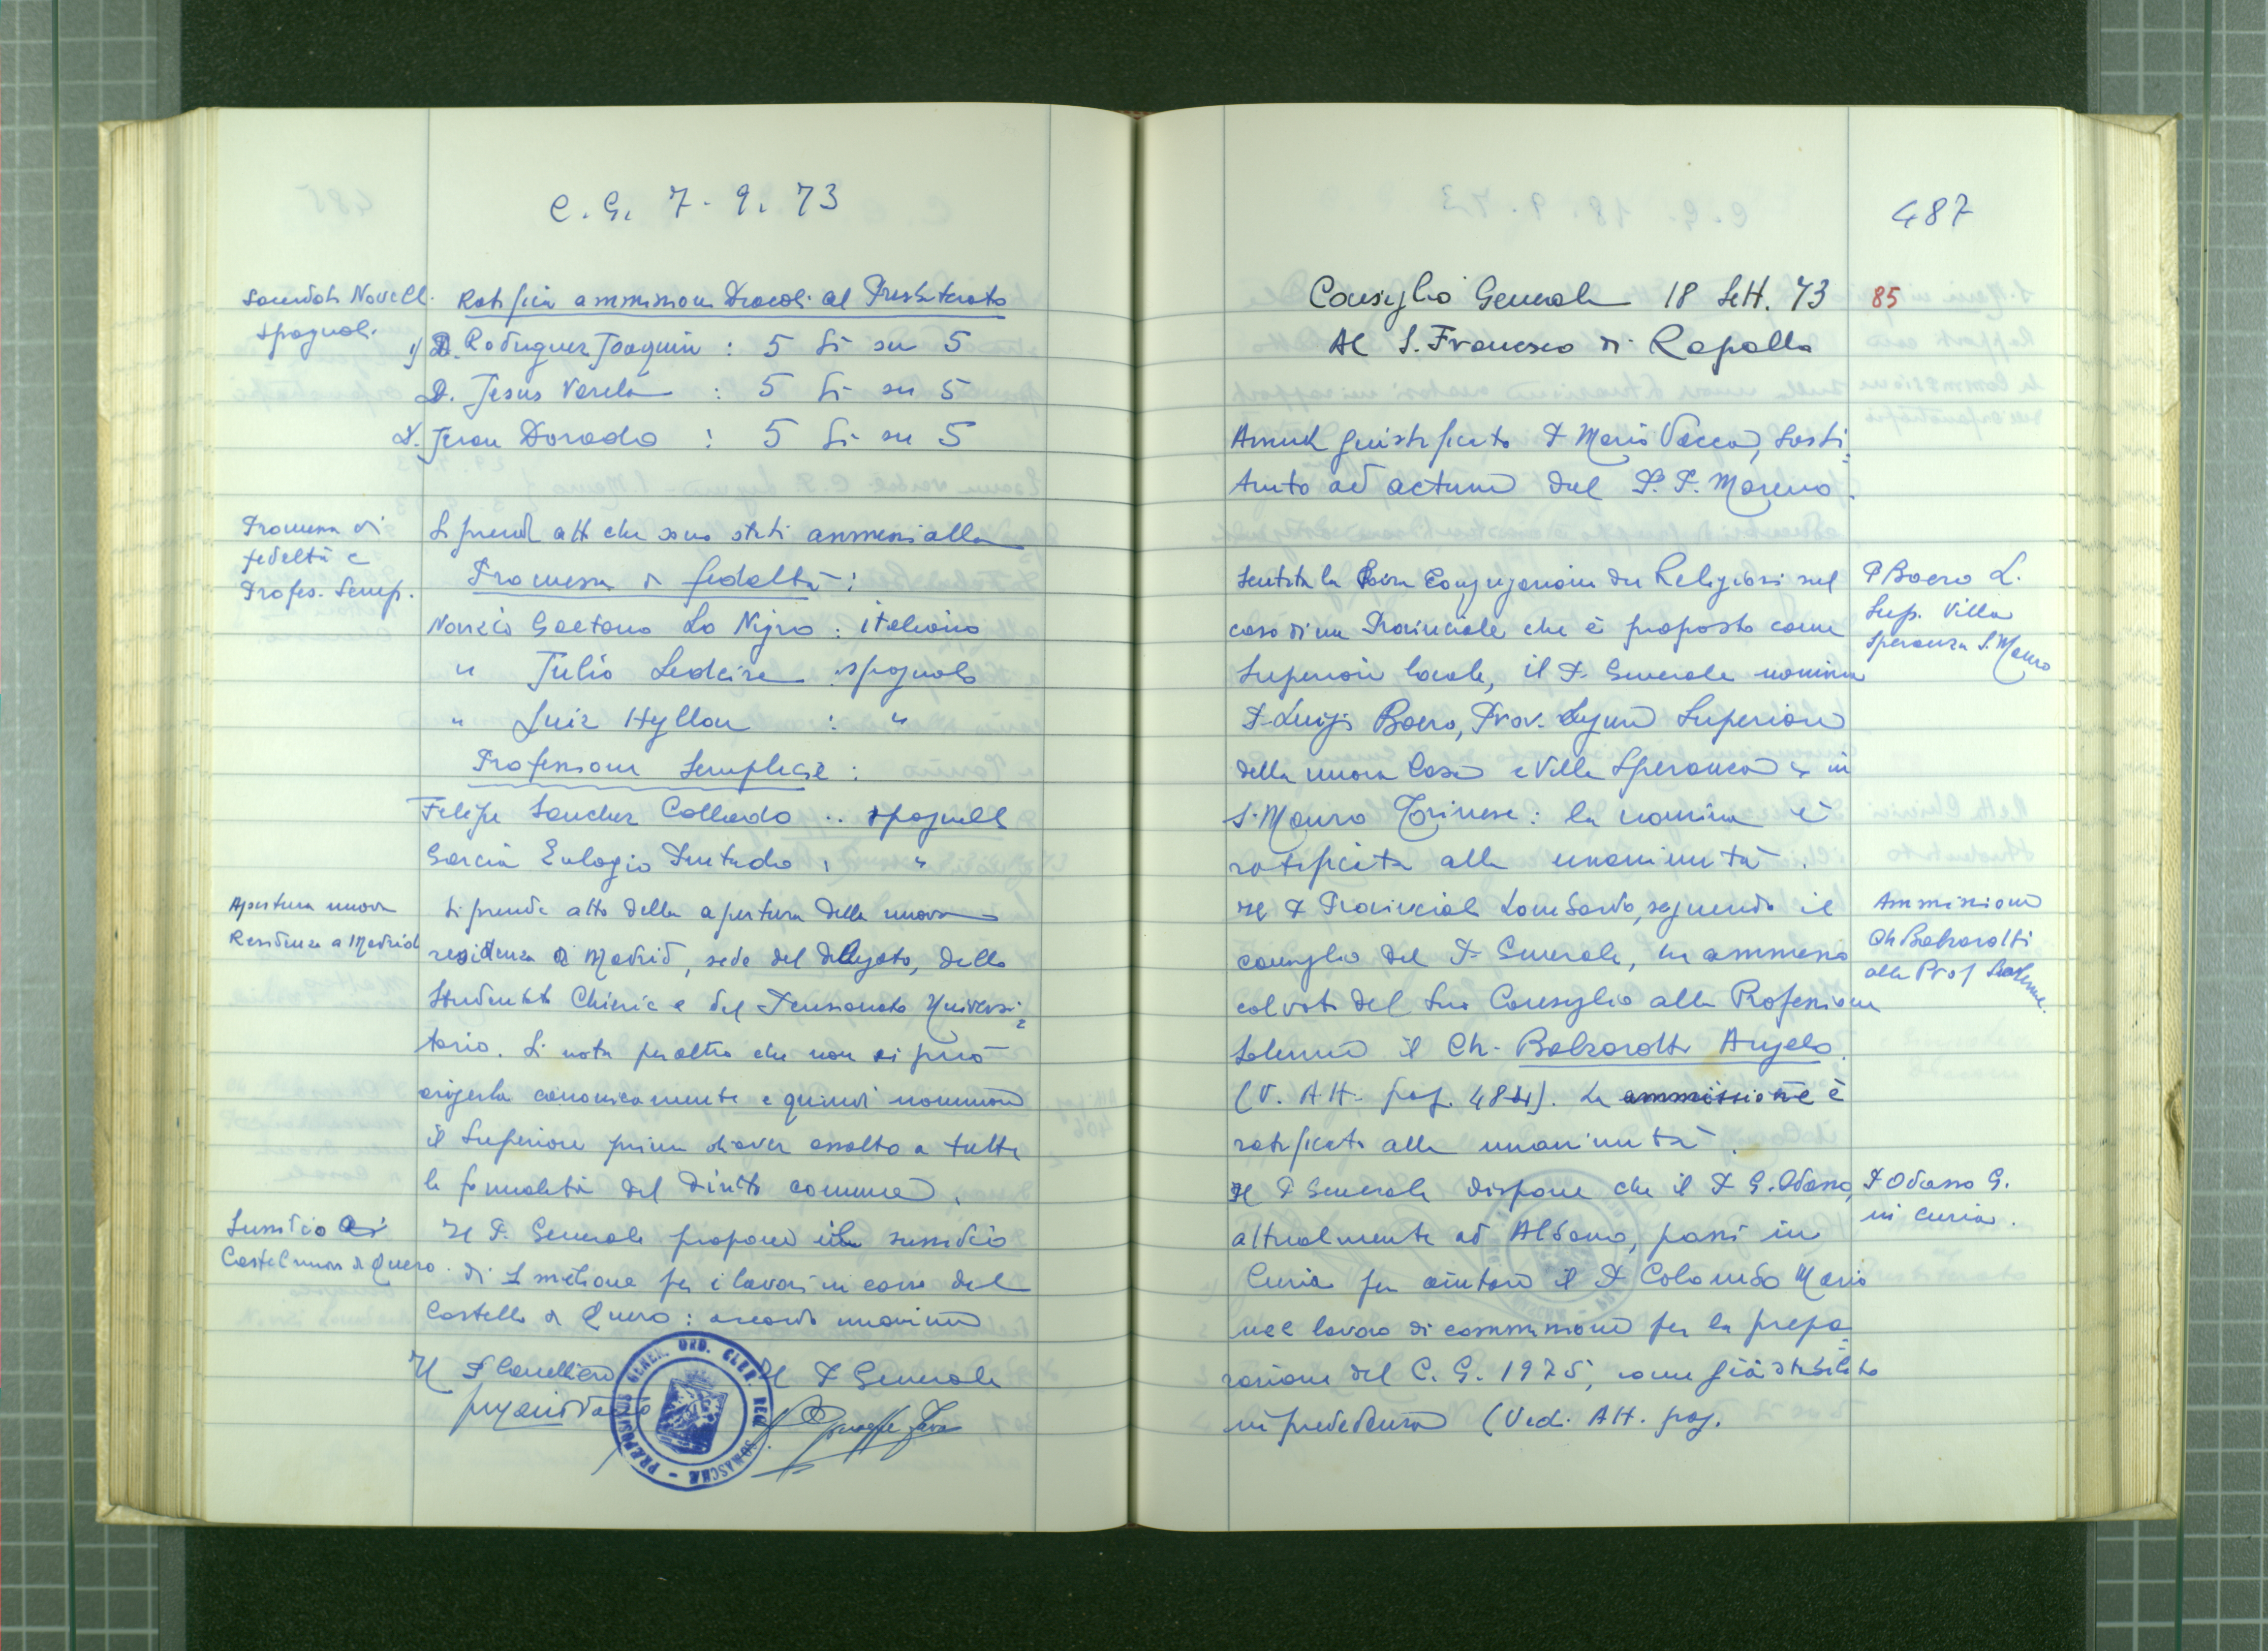 C.G. 7. 9. 73
Sacerdoti Novelli
spagnoli.
Ratifica ammissione Diaconi al Presbiterato
1) D. Rodriguez Joaquin : 5 Si su 5
D. Jesus Varela : 5 Si su 5
D. Juan Dorado : 5 Si su 5
Promessa di
fedeltà e
Profes. Semp.
Si prende atto che sono stati ammessi alla
Promessa di fedeltà :
Novizio Gaetano Lo Nigro : italiano
" Julio : spagnolo
" Luiz Hyllon : "
Professione Semplice :
Felipe Sanchez Collado : spagnolo
Garcia Eulogio : "
Apertura nuova
Residenza a Madrid
Si prende atto della apertura della nuova
residenza di Madrid, sede del delegato, dello
Studentato Chierici e del Pensionato Universi=
tario. Si nota peraltro che non si può
erigerla canonicamente e quindi nominare
il Superiore prima di aver assolto a tutte
le formalità del diritto comune.
Sussidio a
Castelnuovo di Quero.
Il P. Generale propone un sussidio
di 1 milione per i lavori in corso del
Castello di Quero : accordo unanime
Il P. Cancelliere
Il P. Generale
PRAEPOSITUS GENER. ORD. CLER. REG. SOMASCHAE
487
Consiglio Generale 18 Sett. 73
85
Al S. Francesco di Rapallo
Assente giustificato P. Mario Vacca, sosti=
tuito ad actum dal P. P. Moreno.
P Boero L.
Sup. Villa
Speranza S. Mauro
Sentita la Sacra Congregazione dei Religiosi sul
caso di un Provinciale che è proposto come
Superiore locale, il P. Generale nomina
P. Luigi Boero, Prov. Ligure Superiore
della nuova Casa "Villa Speranza" in
S. Mauro Torinese : la nomina è
ratificata alla unanimità.
Ammissione
Ch Balzarotti
alla Prof Solenne.
Il P Provinciale Lombardo, seguendo il
consiglio del P. Generale, ha ammesso
col voto del suo Consiglio alla Professione
Solenne il Ch. Balzarotti Angelo.
(V. Atti pag. 484). La ammissione è
ratificata alla unanimità.
P Odasso G.
in curia.
Il P Generale dispone che il P G. Odasso,
attualmente ad Albano, passi in
Curia per aiutare il P. Colombo Mario
nel lavoro di commissione per la prepa=
razione del C.G. 1975, come già stabilito
in precedenza (Vedi Atti pag.